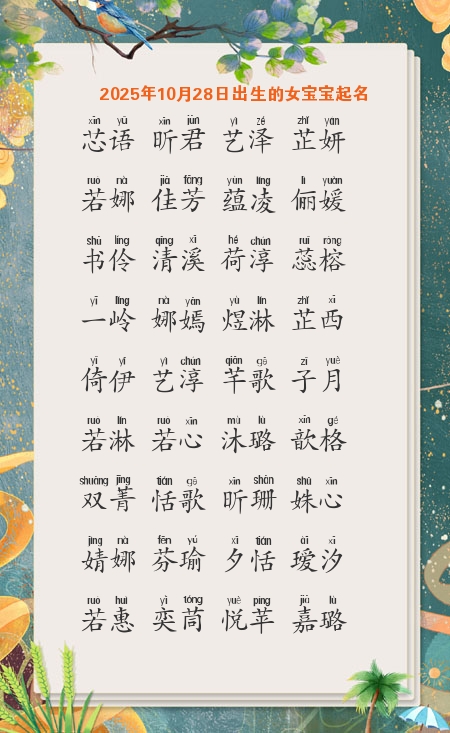 2025年10月28日出生的女宝宝起名
xīn yǔ xīn jūn yì zé zhǐ yán
芯语 昕君 艺泽 芷妍
ruò nà jiā fāng yùn líng lì yuàn
若娜 佳芳 蕴凌 俪媛
shū líng qīng xī hé chún ruǐ róng
书伶 清溪 荷淳 蕊榕
yī lǐng nà yān yù lín zhǐ xī
一岭 娜嫣 煜淋 芷西
yǐ yī yì chún qiān gē zǐ yuè
倚伊 艺淳 芊歌 子月
ruò lín ruò xīn mù lù xīn gé
若淋 若心 沐璐 歆格
shuāng jīng tián gē xīn shān shū xīn
双菁 恬歌 昕珊 姝心
jìng nà fēn yú xī tián ài xī
婧娜 芬瑜 夕恬 瑷汐
ruò huì yì tóng yuè píng jiā lù
若惠 奕茼 悦苹 嘉璐